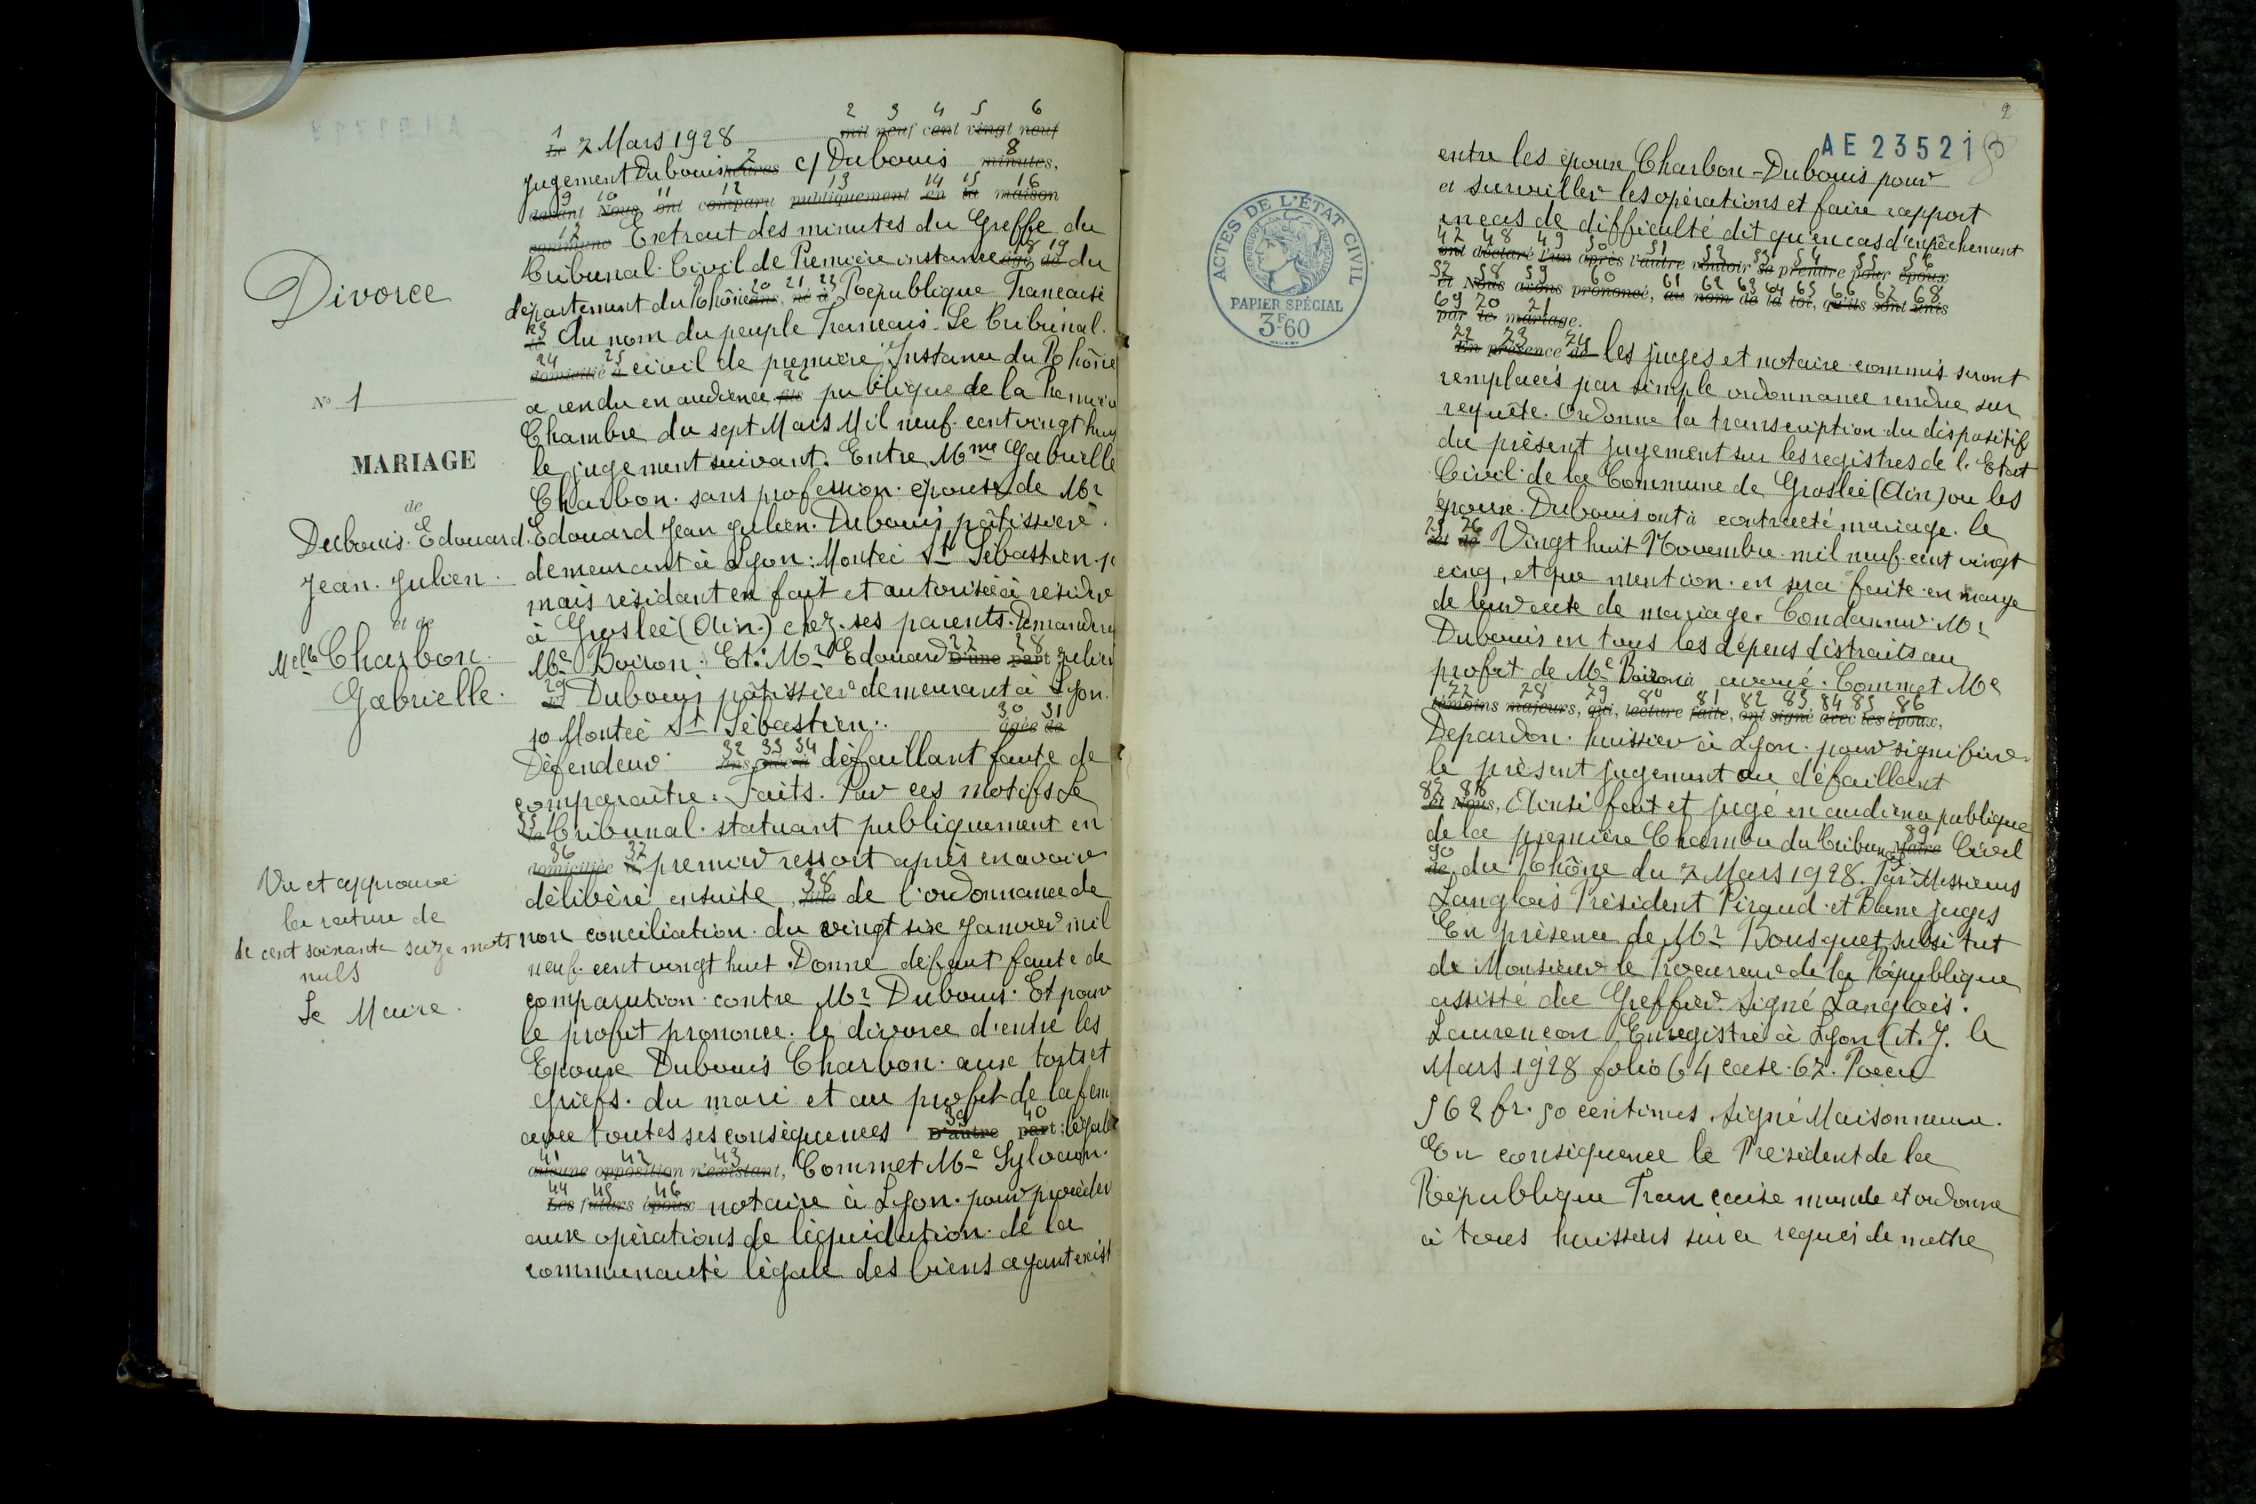 Divorce
N° 1
MARIAGE
de
Dubouis. Edouard.
Jean. Julien.
et de
Melle Charbon.
Gabrielle.
Vu et approuvé
la rature de
de cent soixante seize mots
nuls
Le Maire.
1 2 3 4 5 6
Le 7 Mars 1928 mil neuf cent vingt neuf
7 8
Jugement Dubouis heures c/ Dubouis minutes,
9 10 11 12 13 14 15 16
devant Nous ont comparu publiquement en la maison
17
commune Extrait des minutes du Greffe du
18 19
Tribunal. Civil de Première instance âgé de du
20 21 22
département du Rhône ans, né à République Française
23
le Au nom du peuple Francais. Le Tribunal.
24 25
domicilié à civil de première Instance du Rhône
26
a rendu en audience fils publique de la Premièr
Chambre du sept Mars Mil neuf. cent vingt hui
le jugement suivant. Entre Mme Gabrielle
Charbon. sans profession. épouse de Mr
Edouard Jean Julien. Dubouis pâtissier.
demeurant à Lyon. Montée St Sébastien.
mais résidant en fait et autorisée à résider
à Groslée (Ain.) chez. ses parents. Demanderes
27 28
Me Boiron. Et. Mr Edouard D'une part Julien
29
Et Dubouis pâtissier demeurant à Lyon.
30 31
10 Montée St Sébastien. âgée de
32 33 34
Défendeur ans, née à défaillant faute de
comparaître. Faits. Par ces motifs Le
35
le Tribunal. statuant publiquement en
36 37
domiciliée à premier ressort après en avoir
38
délibéré ensuite fille de l'ordonnance de
non conciliation. du vingt six Janvier mil
neuf. cent vingt huit. Donne défaut faute de
comparution. contre Mr Dubouis. Et pour
le profit prononce. le divorce d'entre les
Epoux Dubouis Charbon. aux torts et
griefs. du mari et au profit de la fem
39 40
avec toutes ses conséquences D'autre part; légale
41 42 43
aucune opposition n'existant, Commet Me Sylvain.
44 45 46
Les futurs époux notaire à Lyon. pour procéder
aux opérations de liquidation. de la
communauté légale des biens ayant exist
2
AE 23521
ACTES DE L'ÉTAT CIVIL
PAPIER SPÉCIAL
3F60
entre les époux Charbon-Dubouis pour
et surveiller les opérations et faire rapport
en cas de difficulté dit qu'en cas d'empêchement
47 48 49 50 51 52 53 54 55 56
ont déclaré l'un après l'autre vouloir se prendre pour époux
57 58 59 60 61 62 63 64 65 66 67 68
et Nous avons prononcé, au nom de la loi, qu'ils sont unis
69 70 71
par le mariage.
72 73 74
En présence de les juges et notaire. commis seront
remplacés par simple ordonnance rendue sur
requête. Ordonne la transcription du dispositif
du présent jugement sur les registres de l'Etat
Civil. de la Commune de Groslée (Ain) ou les
époux. Dubouis ont à contracté mariage. le
75 76
et de Vingt huit Novembre. mil neuf. cent vingt
cinq, et que mention. en sera faite en marge
de leur acte de mariage. Condamner Mr
Dubouis en tous les dépens distraits au
profit de Me Boiron à avoué. Commet Me
77 78 79 80 81 82 83 84 85 86
témoins majeurs, qui, lecture faite, ont signé avec les époux,
Depardon. huissier à Lyon. pour signifier.
le présent jugement au défaillant
87 88
et Nous, Ainsi fait et jugé en audience publique
89
de la première Chambre du Tribunal Maire Civil
90
de du Rhône du 7 Mars 1928. Par Messieurs
Langlois Président Piraud et Blanc juges
En présence de Mr Bousquet, substitut
de Monsieur le Procureur de la République
assisté du Greffier. Signé Langlois.
Laurencon Enregistré à Lyon (A. J. le
Mars 1928 folio 64 case. 67. Recu
562 fr. 50 centimes. Signé Maisonneuve.
En conséquence le Président de la
République Francaise mande et ordonne
à tous huissiers sur ce requis de mettre